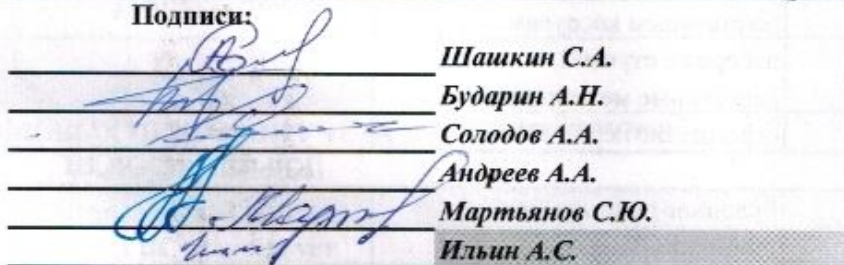 Подписи:
Шашкин С.А.
Бударин А.Н.
Солодов А.А.
Андреев А.А.
Мартьянов С.Ю.
Ильин А.С.